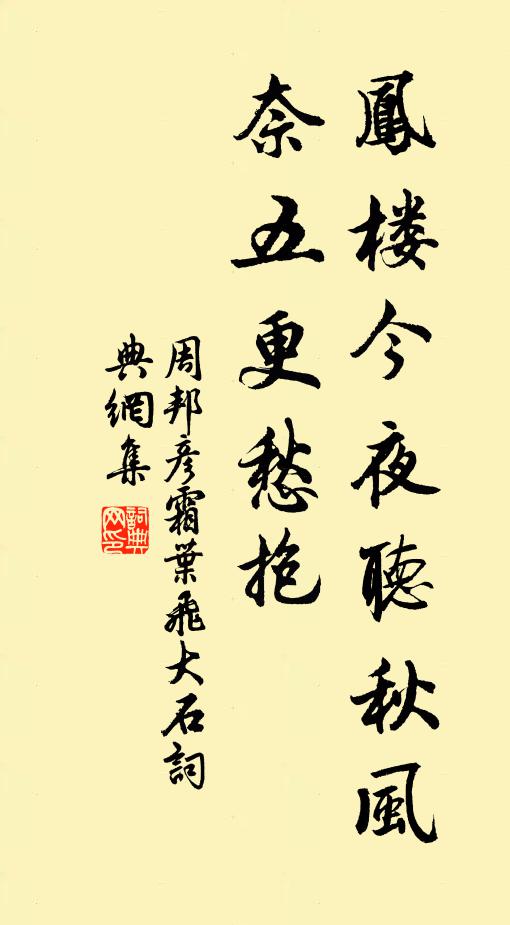 鳳楼今夜聽秋風
奈五更愁抱
周邦彥霜葉飛大石詞
典網集
詞典
网印